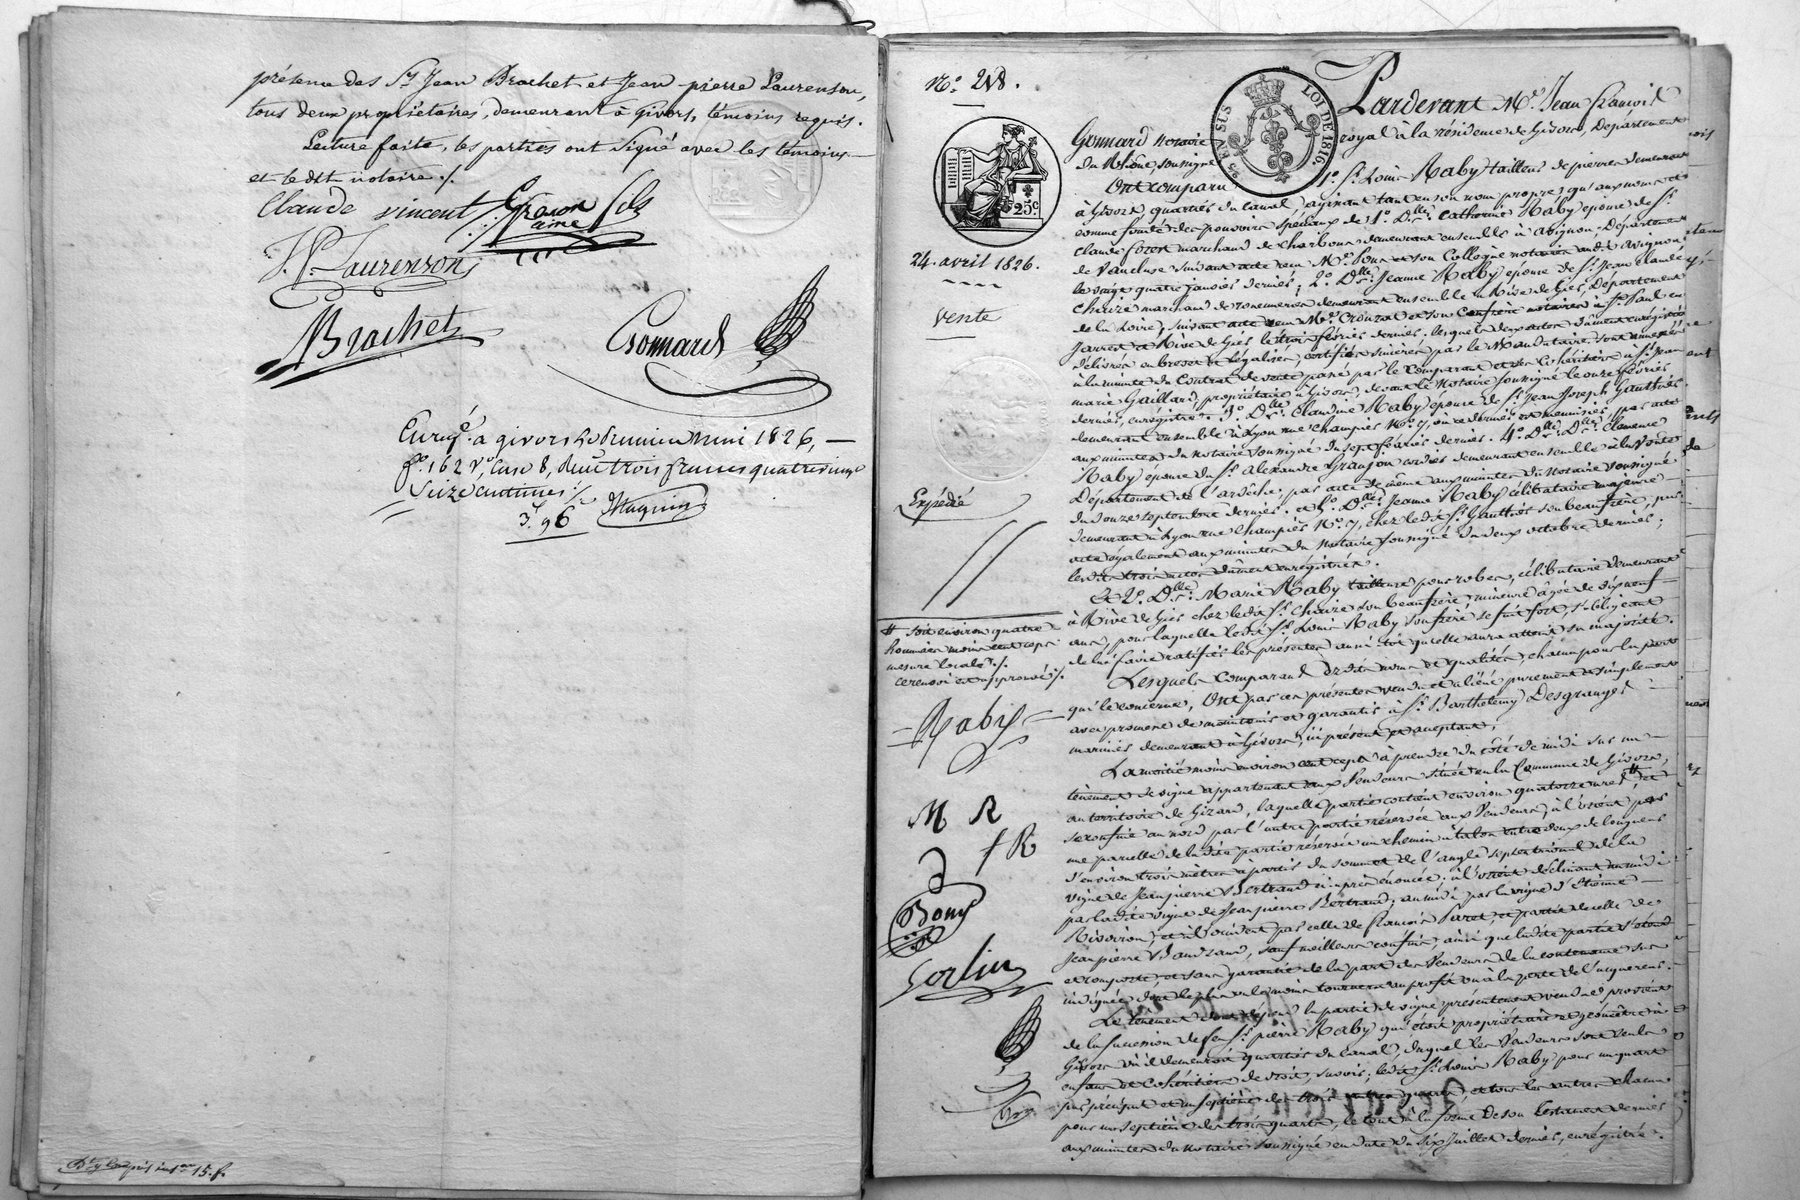 présence des Sr. Jean Brochet et Jean-pierre Laurenson,
tous deux propriétaires, demeurant à Givors, témoins requis.
Lecture faite, les parties ont signé avec les témoins
et ledit notaire ./.
Claude vincent
Greson fils
ainé
J. P. Laurenson
Brochet
Gonnard
Enregé. à givors le premier mai 1826,
fo. 162 vo. Case 8, Reçu trois francs quatrevingt
Seize centimes
3f. 96
Magnin
No. 218.
25c.
24. avril 1826.
vente
Expédié
# soit environ quatre
hommées moins cent ceps
mesure locale ./.
ce renvoi est approuvé ./.
Raby
M R
J R
D
Bony
Gorlin
LOI DE 1816.
EN SUS
Pardevant Me. Jean François
Gonnard notaire royal à la résidence de Givors, Département
du Rhône, soussigné
Ont comparu 1o. Sr. Louis Raby tailleur de pierres demeurant
à Givors, quartier du Canal, agissant tant en son nom propre, qu'aux noms et
comme fondé des pouvoirs spéciaux de 1o. Dlle. Catherine Raby épouse de Sr.
Claude foret marchand de charbons demeurant ensemble à Avignon, Département
de Vaucluse suivant acte reçu Me. Pons et son Collègue notaires audit Avignon
le vingt quatre janvier dernier; 2o. Dlle. Jeanne Raby épouse de Sr. Jean Claude
Chaize marchand de rouenneries demeurant ensemble à Rive de Gier, Département
de la Loire, suivant acte reçu Me. Crouzat et son Confrère notaires à St. Paul en
Jarrest et Rive de Gier le trois février dernier. lesquels deux actes dûment enregistrés
délivrés en brevet et légalisés, certifiés sincères par le Mandataire, sont annexés
à la minute du Contrat de vente passé par le Comparant et ses Cohéritiers à Sr. Jean
marie Gaillard, propriétaire à Givors, devant le Notaire soussigné le onze février
dernier, enregistré. 3o. Dlle. Claudine Raby épouse de Sr. Jean Joseph Gauthier
demeurant ensemble à Lyon rue Champier No. 7,
aux minutes du Notaire soussigné du sept février dernier. 4o. Dlle. Clémence
Raby épouse du Sr. Alexandre Granjon cordier demeurant ensemble à la Voulte
Département de l'ardèche; par acte de même aux minutes du Notaire soussigné
du douze septembre dernier. et 5o. Dlle. Jeanne Raby célibataire majeure
demeurant à Lyon rue Champier No. 7, chez ledit Sr. Gauthier son beaufrère, par
acte également aux minutes du Notaire soussigné du deux octobre dernier;
lesdits trois actes dûment enregistrés.
Et 2o. Dlle. Marie Raby tailleuse pour robes, célibataire demeurant
à Rive de Gier chez ledit Sr. Chaize son beaufrère mineure âgée de dixneuf
ans, pour laquelle ledit Sr. Louis Raby son frère se fait fort, s'obligeant
de lui faire ratifier les présentes aussitôt qu'elle aura atteint sa majorité.
Lesquels Comparants dits noms et qualités, chacun pour la part
qui le concerne, Ont par ces présentes vendu et aliéné purement et simplement
avec promesse de maintenir et garantir à Sr. Barthelemy Desgranges
marinier demeurant à Givors, ici présent et acceptant,
La moitié moins environ cent ceps à prendre du côté de midi sur un
tènement de vigne appartenant aux Vendeurs située en la Commune de Givors,
au territoire de Gizard, laquelle partie contient environ quatorze ares # et
se confine au nord par l'autre partie réservée aux Vendeurs, à l'orient par
une parcelle de ladite partie réservée un chemin à talon entre deux de longueur
d'environ trois mètres à partir du sommet de l'angle septentrional de la
vigne de Jeanpierre Bertrand ci-après énoncée; à l'orient déclinant au midi
par ladite vigne de Jeanpierre Bertrand; au midi par la vigne d'Etienne
Rivoirion, et à l'occident par celle de François Paret, et partie de celle de
Jeanpierre Baudrand, sauf meilleurs confins, ainsi que ladite partie s'étend
et comporte, et sans garantie de la part des Vendeurs de la contenance sus
indiquée dont le plus ou le moins tournera au profit ou à la perte de l'acquéreur.
Le tènement dont dépend la partie de vigne présentement vendue provient
de la succession de feu Sr. pierre Raby qui étoit propriétaire et géomètre à
Givors où il demeuroit quartier du Canal, duquel les Vendeurs sont seuls
enfans et Cohéritiers de droit, savoir; ledit Sr. Louis Raby pour un quart
par préciput et un septième des trois autres quarts, et tous les autres chacun
pour un septième des trois quarts, le tout en la forme de son testament dernier
aux minutes du Notaire soussigné en date du six juillet dernier, enregistré.